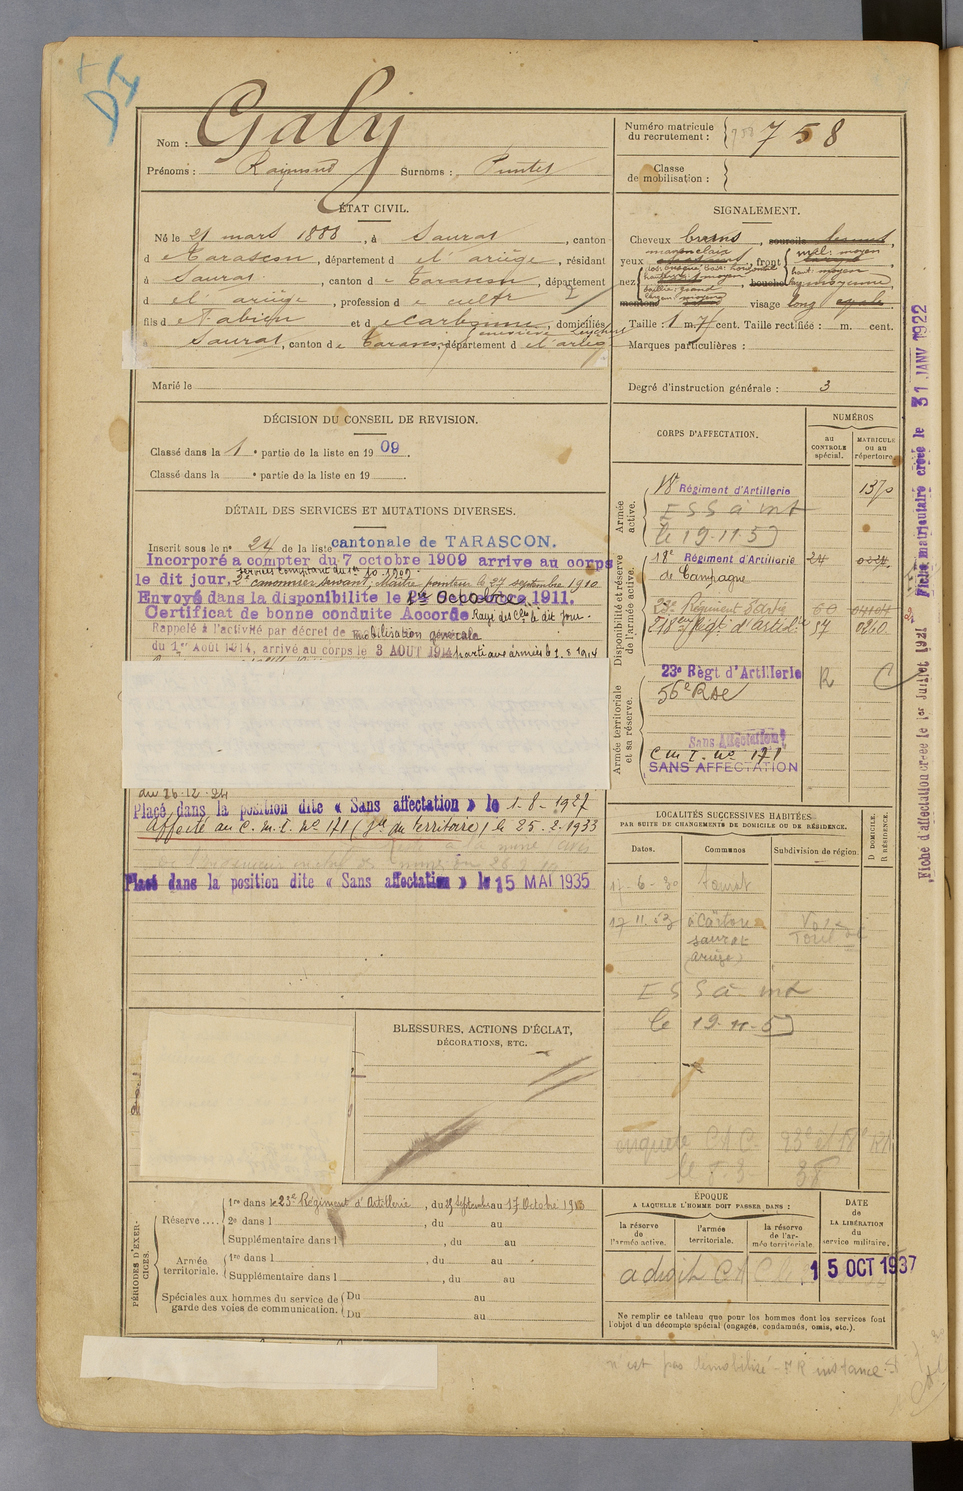 Nom : Galy
Prénoms : Raymond Surnoms : Puntet
Numéro matricule du recrutement : 758
Classe de mobilisation :
ÉTAT CIVIL.
Né le 21 mars 1888, à Saurat, canton
d e Tarascon, département d e l'ariège, résidant
à Saurat, canton d e Tarascon, département
d e l'ariège, profession d e cultr
fils d e Fabien et d e domiciliés
à Saurat, canton d e Tarascon, département d e l'ariège
Marié le
SIGNALEMENT.
Cheveux bruns, sourcils
yeux marron clair, front moyen
nez, bouche moyenne
menton visage long
Taille : 1 m. 71 cent. Taille rectifiée : m. cent.
Marques particulières :
Degré d'instruction générale : 3
DÉCISION DU CONSEIL DE REVISION.
Classé dans la 1e partie de la liste en 1909.
Classé dans la e partie de la liste en 19
DÉTAIL DES SERVICES ET MUTATIONS DIVERSES.
Inscrit sous le n° 24 de la liste cantonale de TARASCON.
Incorporé à compter du 7 octobre 1909 arrive au corps
services comptant du 1er 10. 1909.
le dit jour, 2e canonnier servant, Maître pointeur le 27 septembre 1910
Envoyé dans la disponibilité le Octobre 1911.
Certificat de bonne conduite Accordé Rayé des Cles le dit jour.
Rappelé à l'activité par décret de mobilisation générale
du 1er Août 1914, arrivé au corps le 3 AOUT 1914 parti aux armées le 1. 8 1914
du 26.12.24
Placé dans la position dite « Sans affectation » le 1-8-1927
Affecté au C. M. I. N° 171 (Gde du territoire) le 25-2-1933
Placé dans la position dite « Sans affectation » le 15 MAI 1935
CORPS D'AFFECTATION.
NUMÉROS
au CONTROLE spécial.
MATRICULE ou au répertoire.
Armée active.
18e Régiment d'Artillerie 1370
ESS à int
le 19-11-53
Disponibilité et réserve de l'armée active.
18e Régiment d'Artillerie 24 0224
de Campagne
23e Régiment d'artie 60 04104
Régt d'artie 57 0260
Armée territoriale et sa réserve.
23e Régt d'Artillerie R C
56e RAC
Sans Affectation
C M I. N° 171
SANS AFFECTATION
LOCALITÉS SUCCESSIVES HABITÉES
PAR SUITE DE CHANGEMENTS DE DOMICILE OU DE RÉSIDENCE.
Dates. Communes Subdivision de région. D DOMICILE. R RÉSIDENCE.
17-6-30 Saurat
17 11.53
Saurat
(ariège)
ESS à int
le 19-11-53
enquête CAC 23e et 18e RA
BLESSURES, ACTIONS D'ÉCLAT,
DÉCORATIONS, ETC.
PÉRIODES D'EXERCICES.
Réserve.... 1re dans le 23e Régiment d'Artillerie, du 25 septembre au 17 Octobre 1913
2e dans l , du au
Supplémentaire dans l , du au
Armée territoriale. 1re dans l , du au
Supplémentaire dans l , du au
Spéciales aux hommes du service de garde des voies de communication. Du au
Du au
ÉPOQUE
A LAQUELLE L'HOMME DOIT PASSER DANS :
la réserve de l'armée active.
l'armée territoriale.
la réserve de l'armée territoriale.
DATE de LA LIBÉRATION du service militaire.
a droit CA 15 OCT 1937
Ne remplir ce tableau que pour les hommes dont les services font
l'objet d'un décompte spécial (engagés, condamnés, omis, etc.).
n'est pas démobilisé - instance
Fiche d'affectation créée le 1er Juillet 1921
Fiche matriculaire créée le 31 JANV 1922